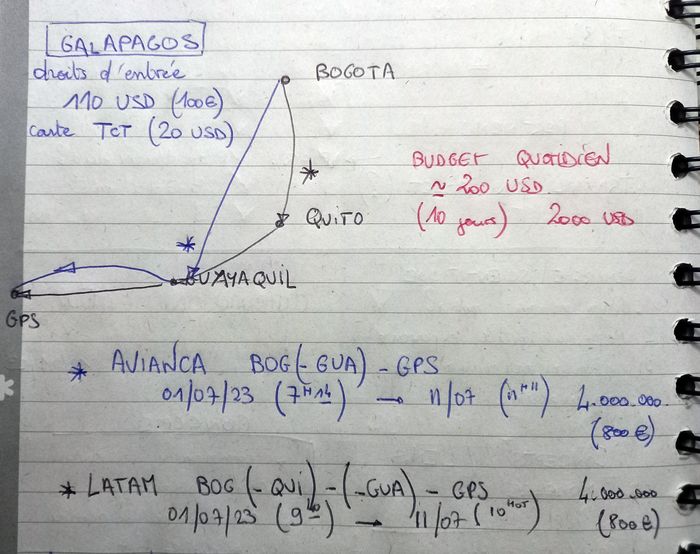 GALAPAGOS
droits d'entrée
110 USD (100€)
carte TCT (20 USD)
BOGOTA
BUDGET QUOTIDIEN
≈ 200 USD
(10 jours) 2000 USD
*
QUITO
*
GUAYAQUIL
GPS
* AVIANCA BOG(-GUA) - GPS
01/07/23 (7H14) → 11/07 (11H11) 4.000.000
(800€)
* LATAM BOG (-QUI) - (-GUA) - GPS 4.000.000
01/07/23 (9H40) → 11/07 (10H05) (800€)